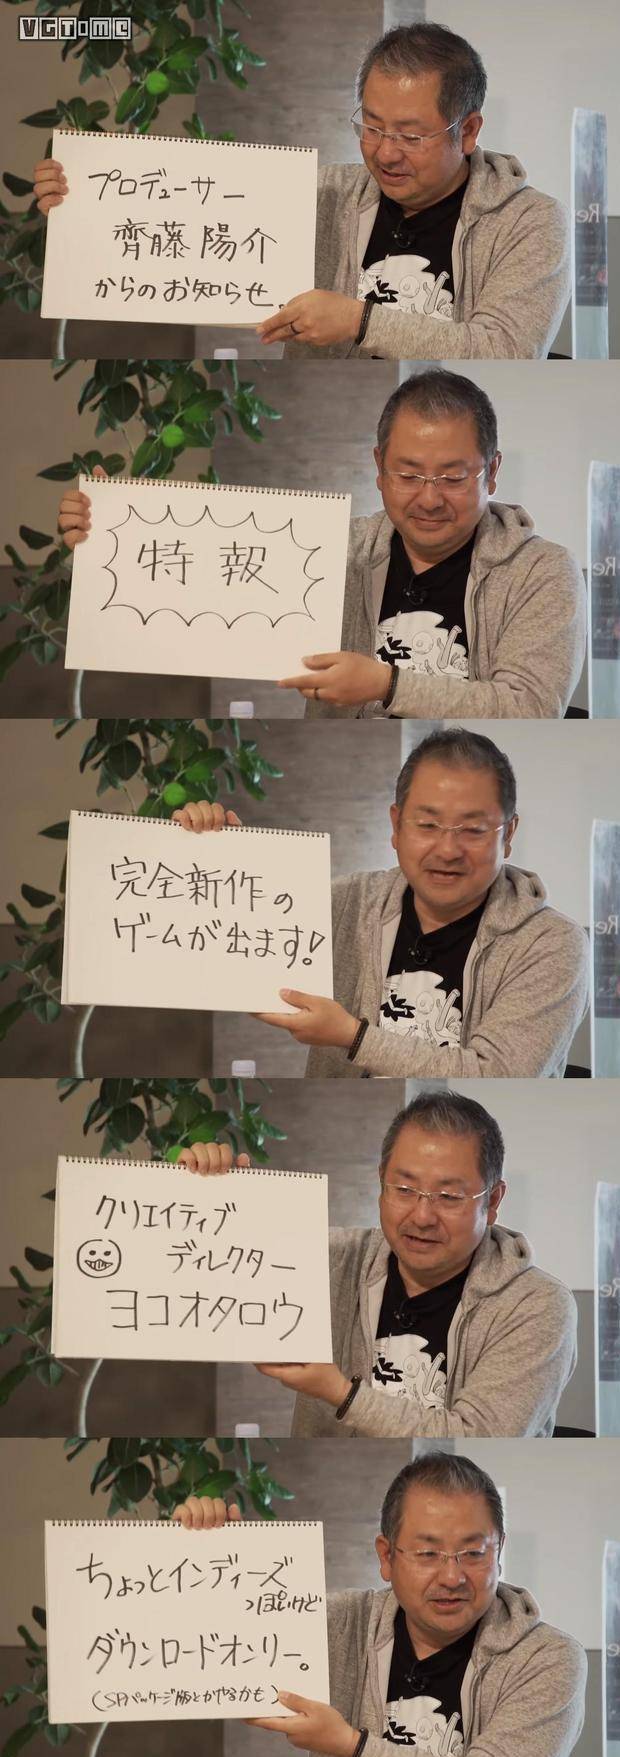 VGTIME
プロデューサー
齊藤陽介
からのお知らせ。
特報
完全新作の
ゲームが出ます!
クリエイティブ
ディレクター
ヨコオタロウ
ちょっとインディーズ
っぽいけど
ダウンロードオンリー。
(SPパッケージ版とかやるかも)